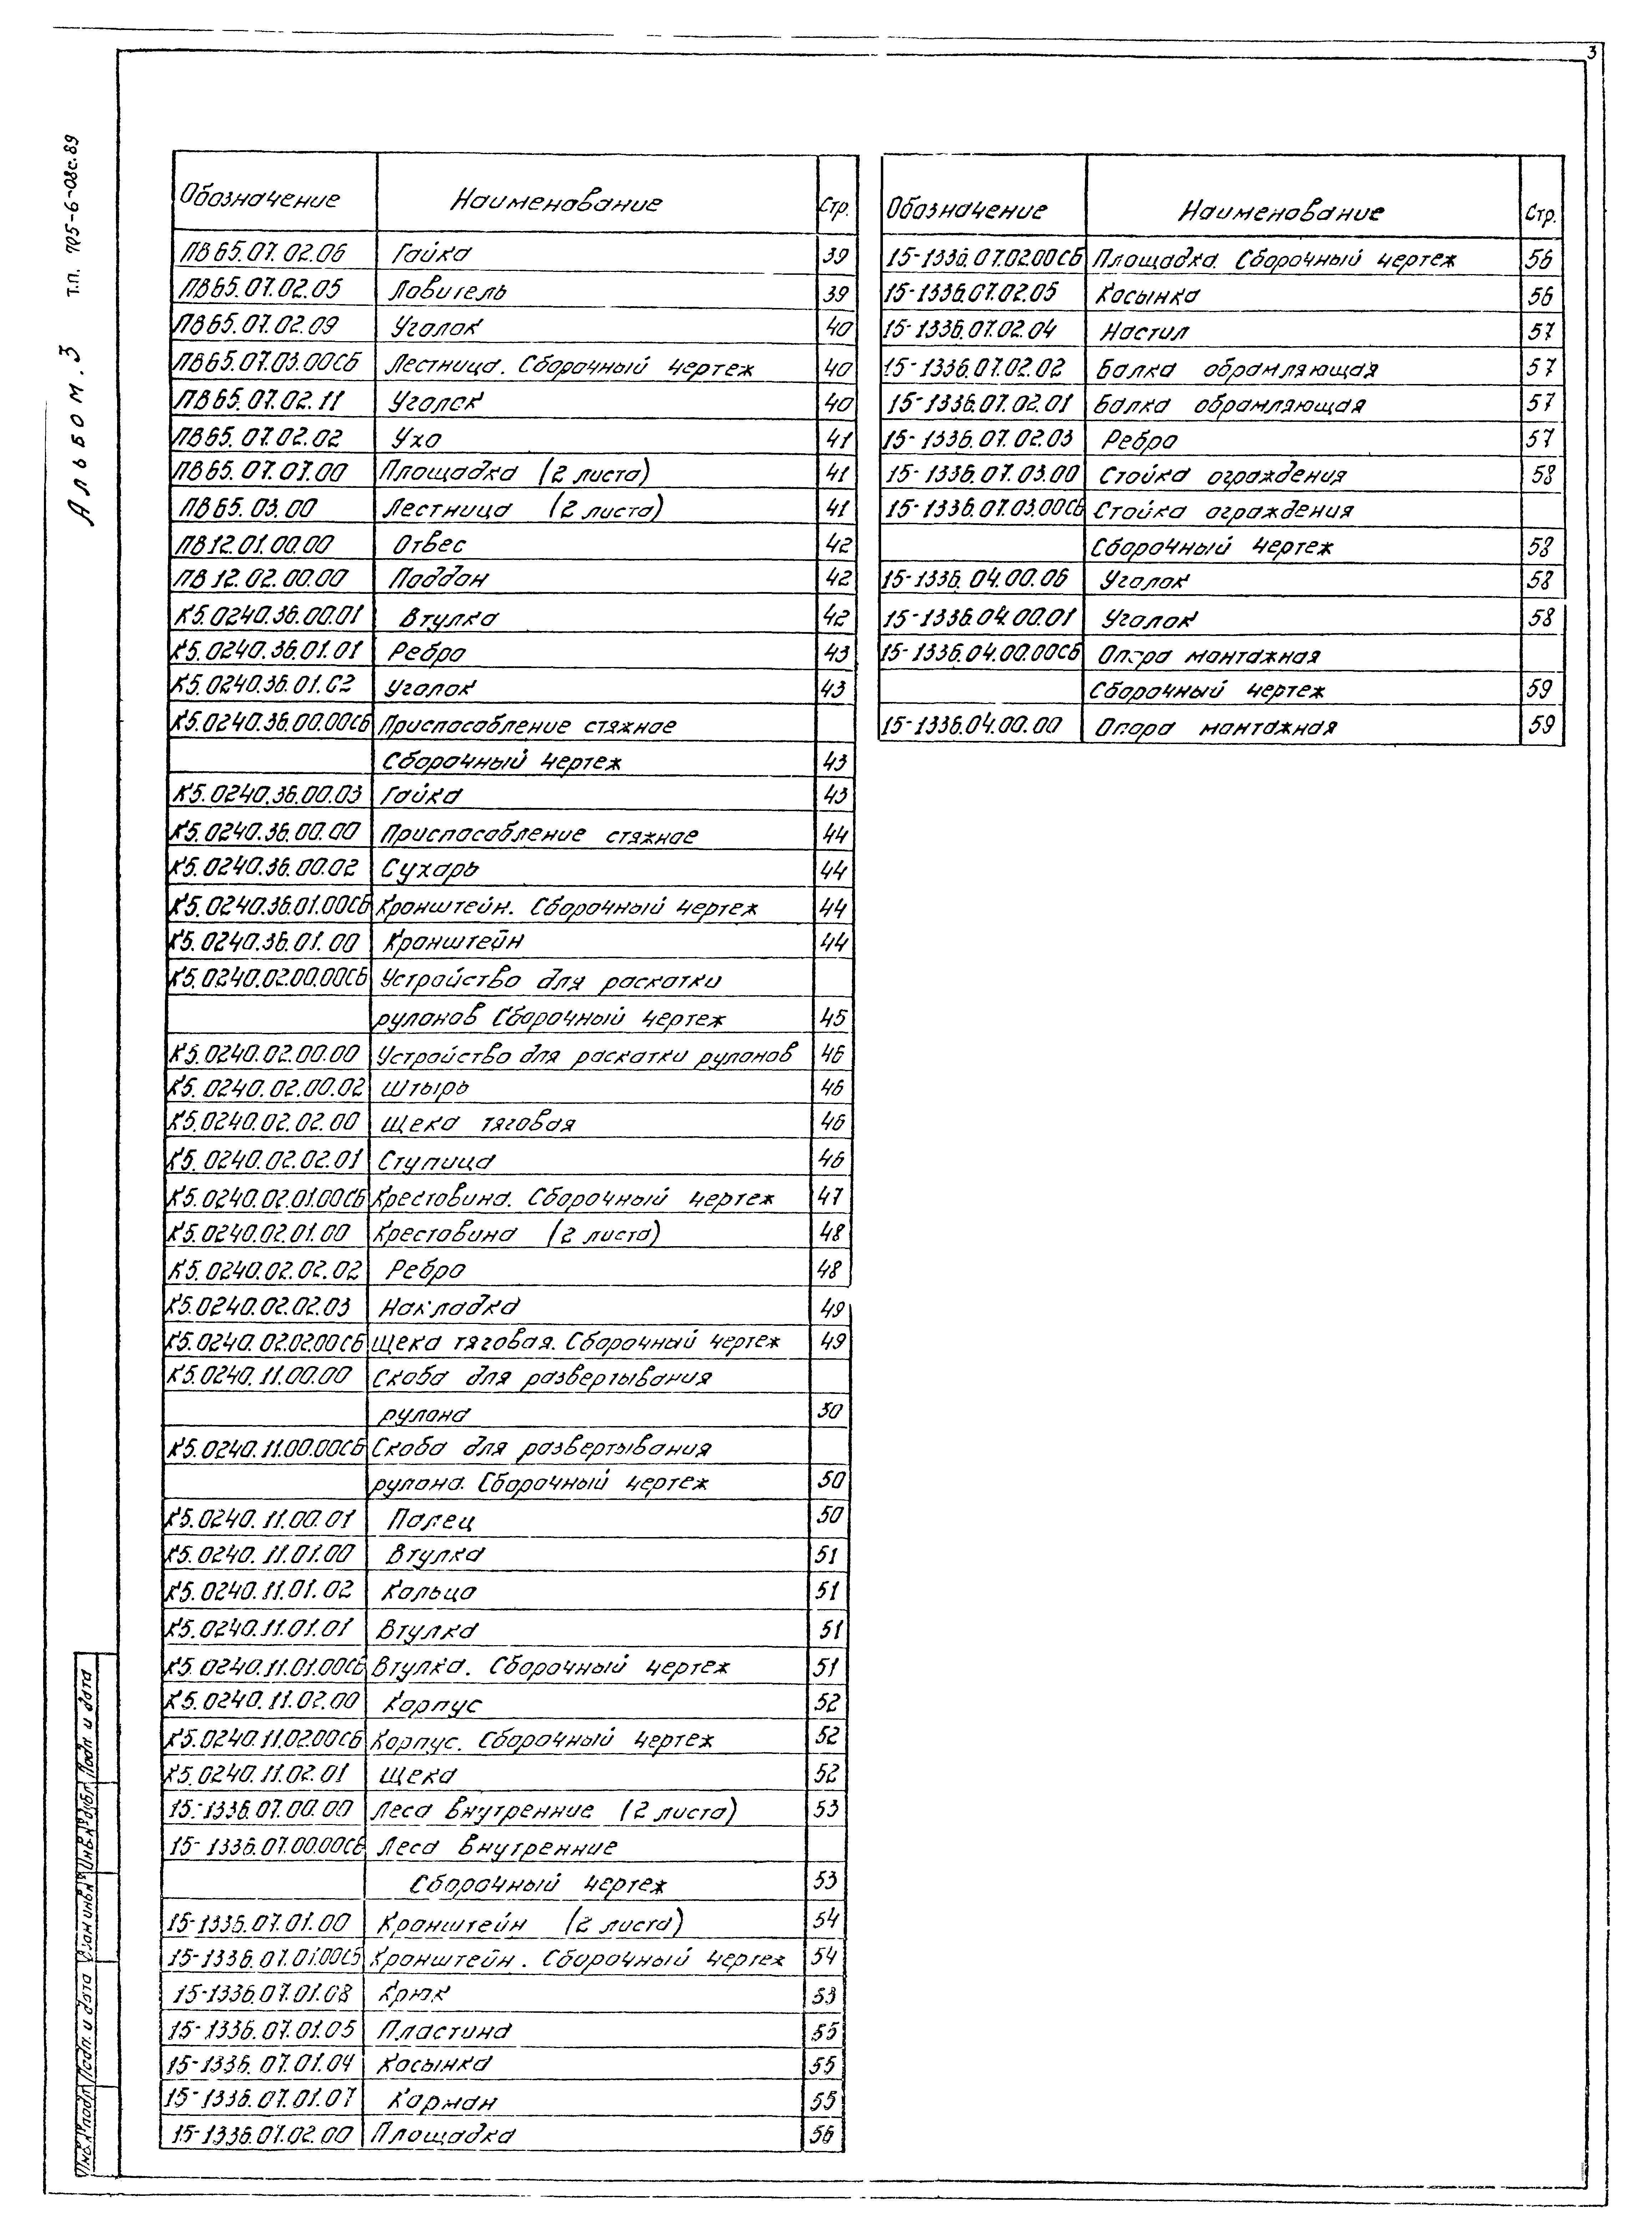 3
Альбом. 3 т.п. 705-6-08с.89
Обозначение Наименование Стр.
ПВ65.07.02.06 Гайка 39
ПВ65.07.02.05 Ловитель 39
ПВ65.07.02.09 Уголок 40
ПВ65.07.03.00СБ Лестница. Сборочный чертеж 40
ПВ65.07.02.11 Уголок 40
ПВ65.07.02.02 Ухо 41
ПВ65.07.01.00 Площадка (2 листа) 41
ПВ65.03.00 Лестница (2 листа) 41
ПВ12.01.00.00 Отвес 42
ПВ12.02.00.00 Поддон 42
К5.0240.36.00.01 Втулка 42
К5.0240.36.01.01 Ребро 43
К5.0240.36.01.02 Уголок 43
К5.0240.36.00.00СБ Приспособление стяжное
Сборочный чертеж 43
К5.0240.36.00.03 Гайка 43
К5.0240.36.00.00 Приспособление стяжное 44
К5.0240.36.00.02 Сухарь 44
К5.0240.36.01.00СБ Кронштейн. Сборочный чертеж 44
К5.0240.36.01.00 Кронштейн 44
К5.0240.02.00.00СБ Устройство для раскатки
рулонов Сборочный чертеж 45
К5.0240.02.00.00 Устройство для раскатки рулонов 46
К5.0240.02.00.02 Штырь 46
К5.0240.02.02.00 Щека тяговая 46
К5.0240.02.02.01 Ступица 46
К5.0240.02.01.00СБ Крестовина. Сборочный чертеж 47
К5.0240.02.01.00 Крестовина (2 листа) 48
К5.0240.02.02.02 Ребро 48
К5.0240.02.02.03 Накладка 49
К5.0240.02.02.00СБ Щека тяговая. Сборочный чертеж 49
К5.0240.11.00.00 Скоба для развертывания
рулона 50
К5.0240.11.00.00СБ Скоба для развертывания
рулона. Сборочный чертеж 50
К5.0240.11.00.01 Палец 50
К5.0240.11.01.00 Втулка 51
К5.0240.11.01.02 Кольцо 51
К5.0240.11.01.01 Втулка 51
К5.0240.11.01.00СБ Втулка. Сборочный чертеж 51
К5.0240.11.02.00 Корпус 52
К5.0240.11.02.00СБ Корпус. Сборочный чертеж 52
К5.0240.11.02.01 Щека 52
15-1336.07.00.00 Леса внутренние (2 листа) 53
15-1336.07.00.00СБ Леса внутренние
Сборочный чертеж 53
15-1336.07.01.00 Кронштейн (2 листа) 54
15-1336.07.01.00СБ Кронштейн. Сборочный чертеж 54
15-1336.07.01.08 Крюк 53
15-1336.07.01.05 Пластина 55
15-1336.07.01.04 Косынка 55
15-1336.07.01.07 Карман 55
15-1336.07.02.00 Площадка 56
Обозначение Наименование Стр.
15-1336.07.02.00СБ Площадка. Сборочный чертеж 56
15-1336.07.02.05 Косынка 56
15-1336.07.02.04 Настил 57
15-1336.07.02.02 Балка обрамляющая 57
15-1336.07.02.01 Балка обрамляющая 57
15-1336.07.02.03 Ребро 57
15-1336.07.03.00 Стойка ограждения 58
15-1336.07.03.00СБ Стойка ограждения
Сборочный чертеж 58
15-1336.04.00.06 Уголок 58
15-1336.04.00.01 Уголок 58
15-1336.04.00.00СБ Опора монтажная
Сборочный чертеж 59
15-1336.04.00.00 Опора монтажная 59
Инв.№подл. Подп. и дата Взам инв.№ Инв.№дубл. Подп и дата